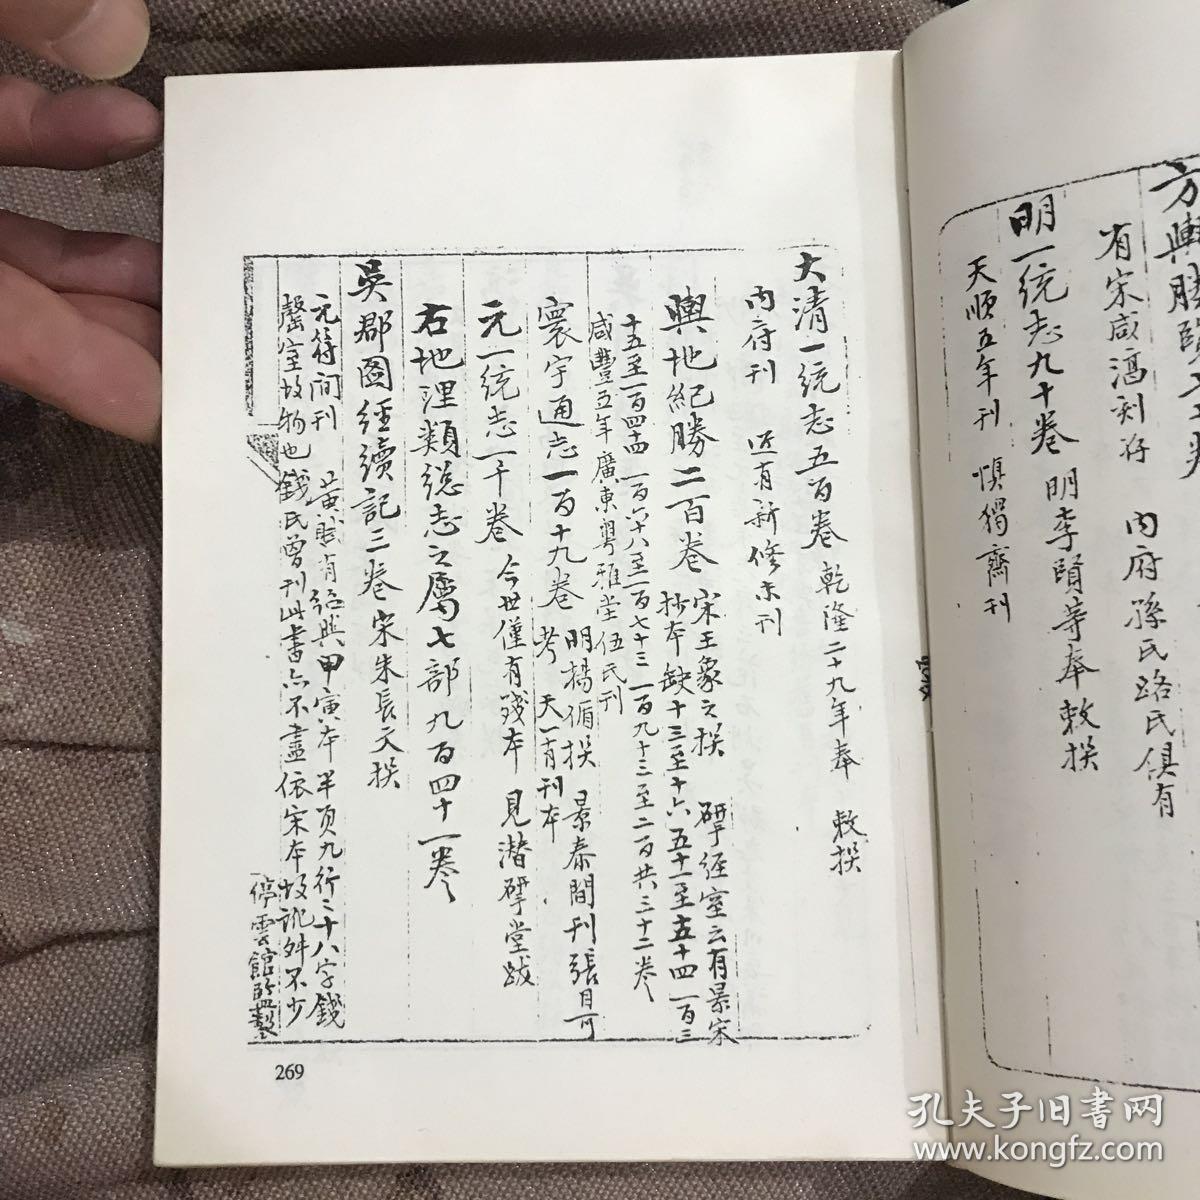 方輿勝覽
有宋咸淳刻存　內府孫氏路氏俱有
明一統志九十卷　明李賢等奉敕撰
天順五年刊　慎獨齋刊
大清一統志五百卷　乾隆二十九年奉　敕撰
內府刊　近有新修未刊
輿地紀勝二百卷　宋王象之撰　揅經室云有景宋
抄本缺十三至十六　五十一至五十四　一百三
十五至一百四十四　一百六十八至一百七十三　一百九十三至二百共三十二卷
咸豐五年廣東粵雅堂伍氏刊
寰宇通志一百十九卷　明楊循撰　景泰間刊張目可
考　天一有刊本
元一統志一千卷　今世僅有殘本　見潛揅堂跋
右地理類總志之屬七部九百四十一卷
吳郡圖經續記三卷　宋朱長文撰
元符間刊　黃賦有紹興甲寅本　半頁九行二十八字錢
罄室故物也　錢氏曾刊此書亦不盡依宋本故訛舛不少
停雲館監製
269
孔夫子旧书网
www.kongfz.com